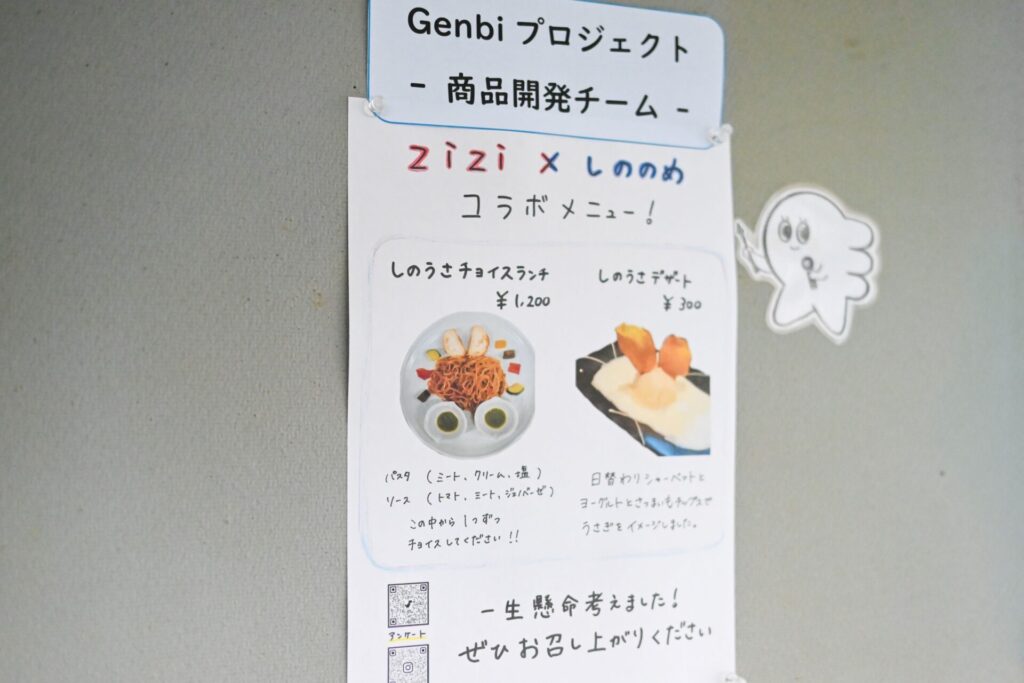 Genbi プロジェクト
- 商品開発チーム -
zizi × しののめ
コラボメニュー!
しのうさチョイスランチ
¥1,200
しのうさデザート
¥300
パスタ (ミート、クリーム、塩)
ソース (トマト、ミート、ジェノバーゼ)
この中から1つずつ
チョイスしてください!!
日替わりシャーベットと
ヨーグルトとさつまいもチップスで
うさぎをイメージしました。
アンケート
一生懸命考えました!
ぜひお召し上がりください